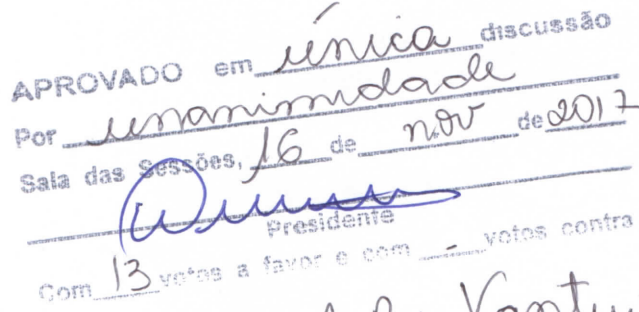 APROVADO em única discussão
Por unanimidade
Sala das Sessões, 16 de nov de 2017
Presidente
Com 13 votos a favor e com - votos contra